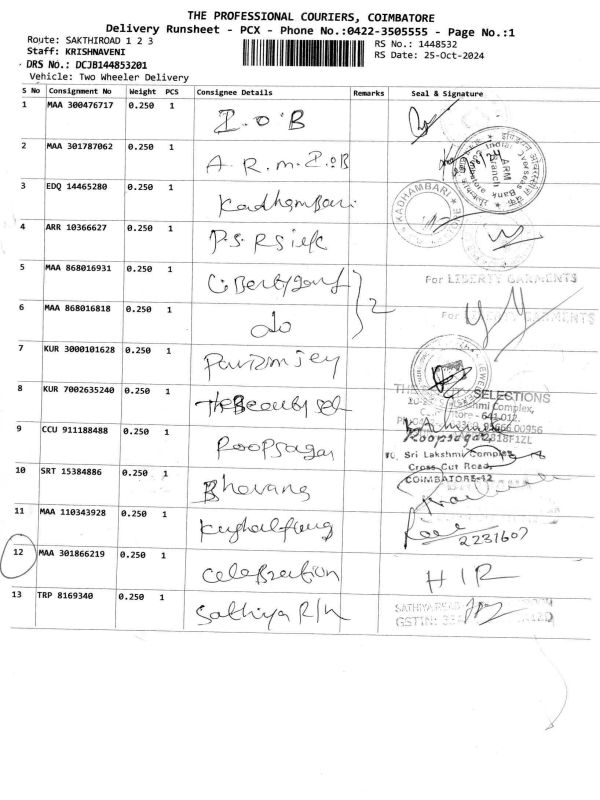 THE PROFESSIONAL COURIERS, COIMBATORE
Delivery Runsheet - PCX - Phone No.:0422-3505555 - Page No.:1
Route: SAKTHIROAD 1 2 3
RS No.: 1448532
Staff: KRISHNAVENI
RS Date: 25-Oct-2024
DRS No.: DCJB144853201
Vehicle: Two Wheeler Delivery
S No Consignment No Weight PCS Consignee Details Remarks Seal & Signature
1 MAA 300476717 0.250 1 I.O.B
2 MAA 301787062 0.250 1 A.R.M.I.O.B
3 EDQ 14465280 0.250 1 Kadhambari KADHAMBARI
4 ARR 10366627 0.250 1 P.S.R Silk
5 MAA 868016931 0.250 1 For LIBERTY GARMENTS
6 MAA 868016818 0.250 1 do 2 For LIBERTY GARMENTS
7 KUR 3000101628 0.250 1
8 KUR 7002635240 0.250 1 The Beauty Sel SELECTIONS
9 CCU 911188488 0.250 1 Roopsagar Roopsagar
10, Sri Lakshmi Complex
Cross Cut Road,
COIMBATORE-12
10 SRT 15384886 0.250 1
11 MAA 110343928 0.250 1 2231607
12 MAA 301866219 0.250 1 Celebration HIR
13 TRP 8169340 0.250 1 Sathiya R/H
GSTIN: